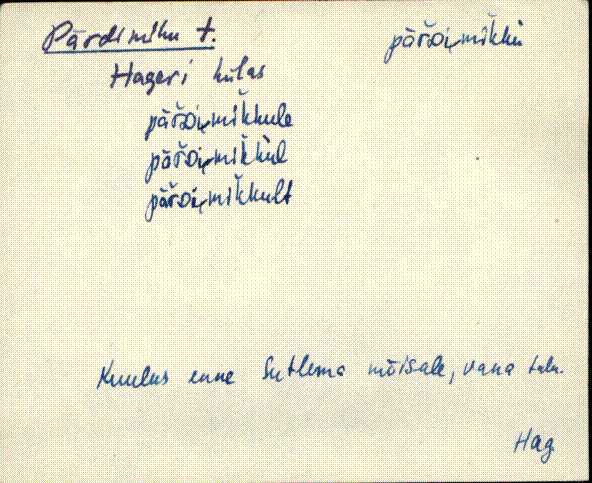 Pärdimihu t. pär̆ᴅi̮mik̆kù
Hageri külas
pär̆ᴅi̮mik̆kule
pär̆ᴅi̮mik̆kùl
pär̆ᴅi̮mik̆kult
Kuulus enne Sutlema mõisale, vana talu.
Hag